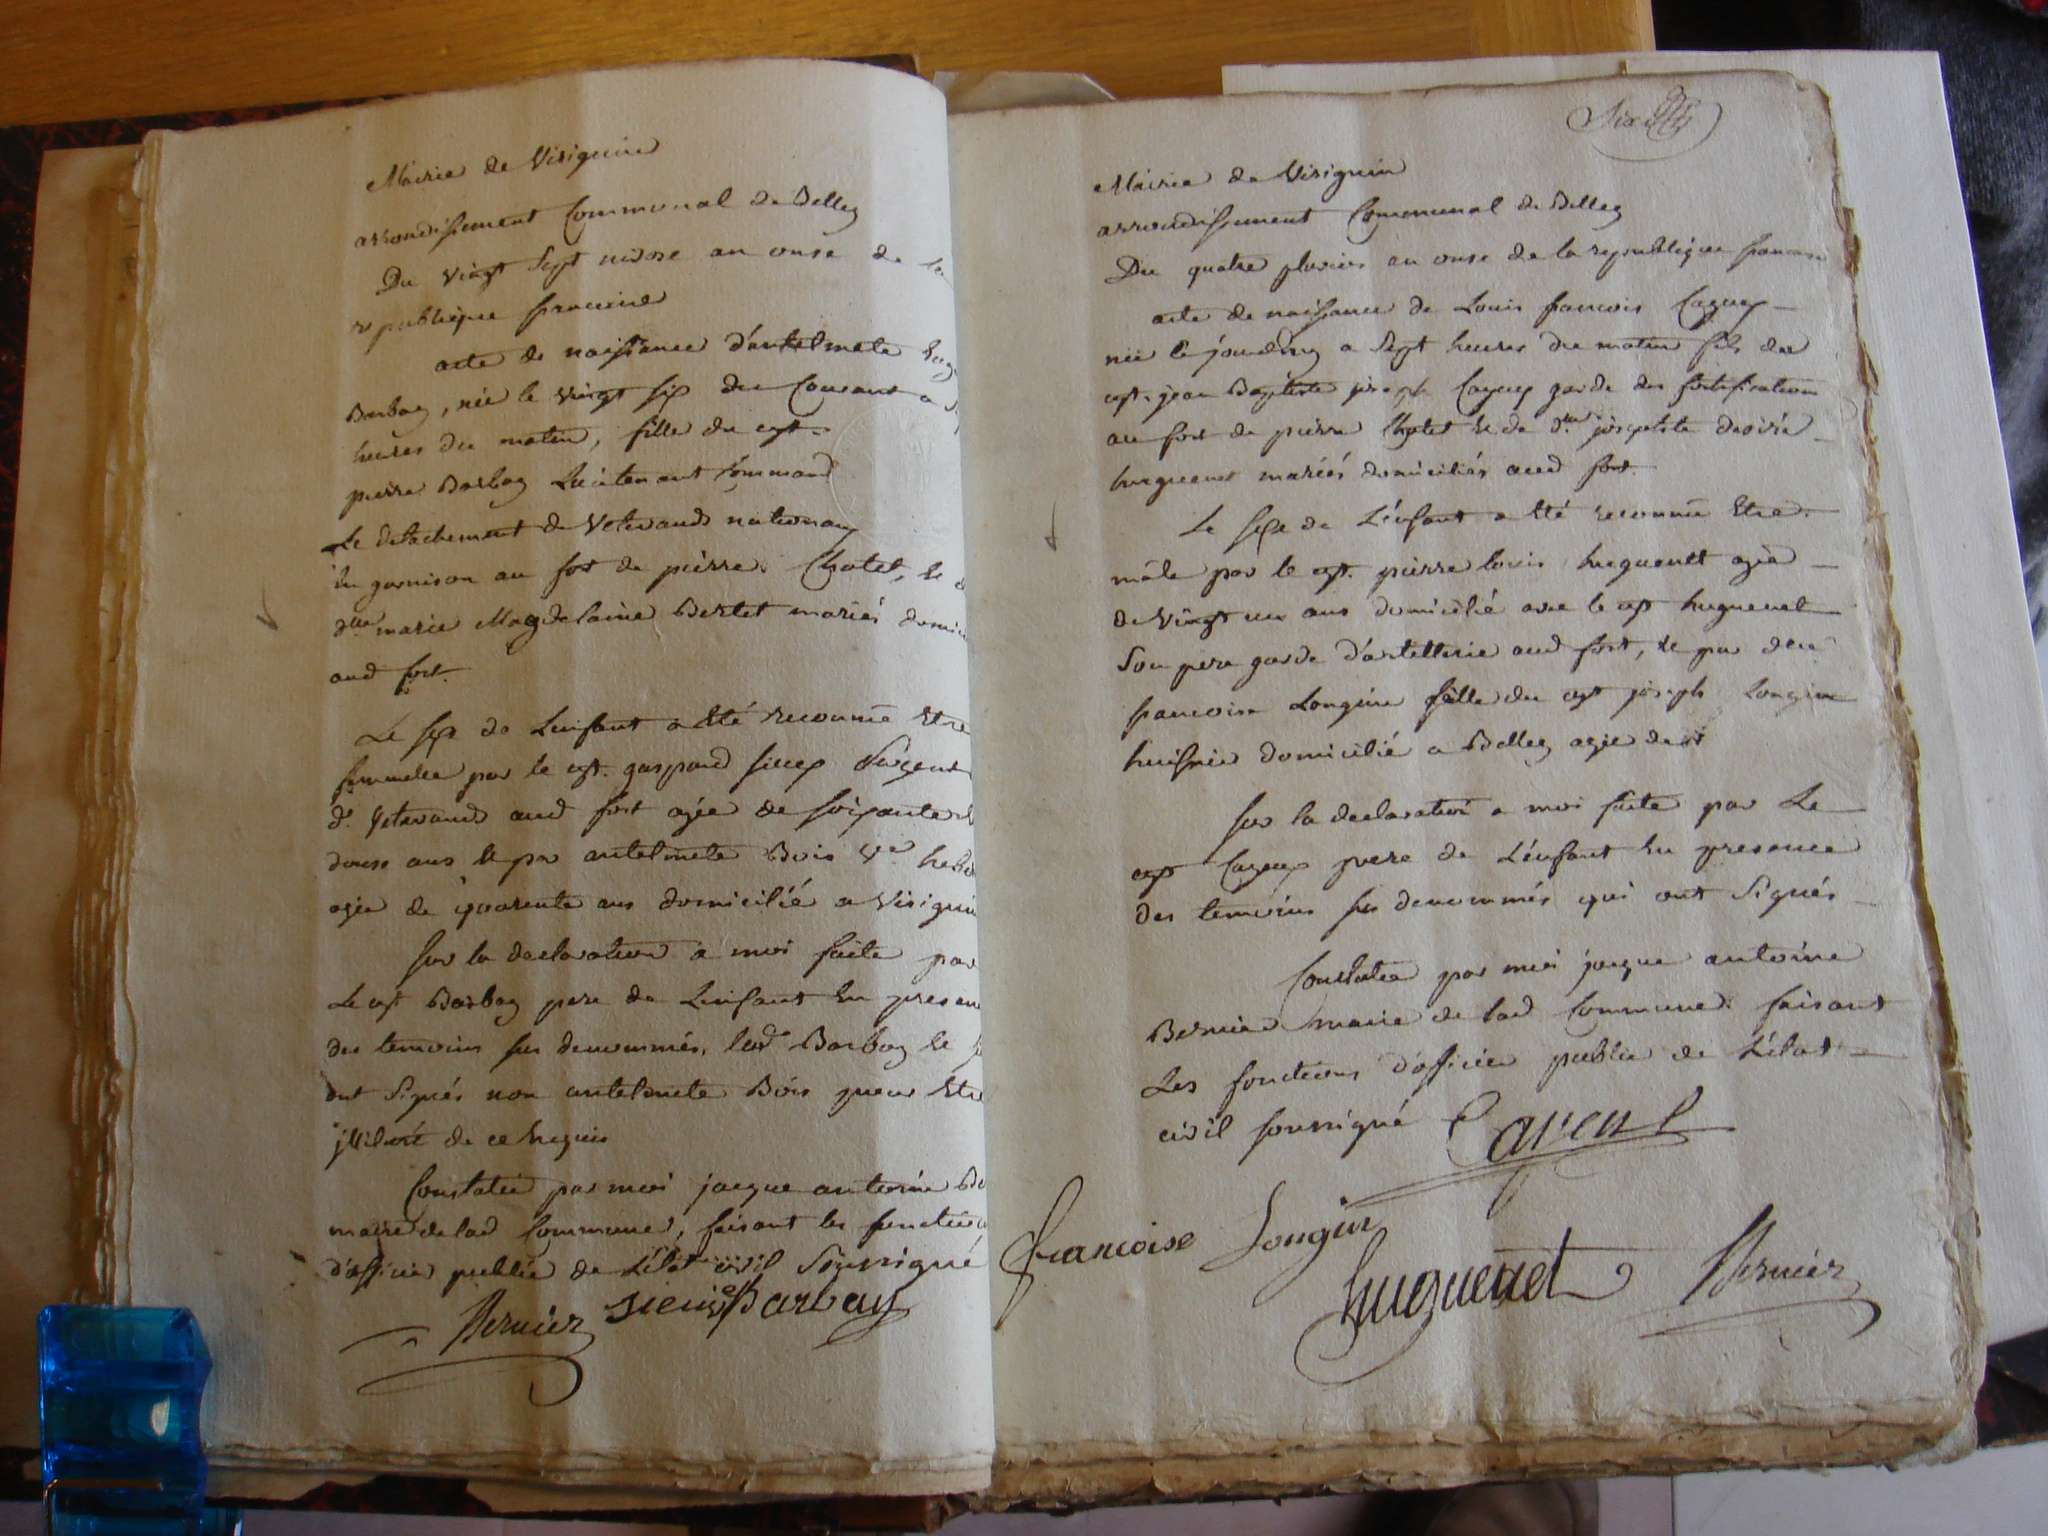 Mairie de Virignin
arrondissement Communal de Belley
Du vingt Sept nivose an onse de la
republique francaise
acte de naissance d'antelmete
Barbay, née le vingt six du Courant a
heures du matin, fille du cyt.
pierre Barbay Lieutenant Command
Le detachement de Veterands nationaux
En garnison au fort de pierre Chatel, et d
dlle marie Magdelaine Bertet mariés domici
aud fort.
Le sexe de Lenfant a Eté reconnu Etre
femmelle par le cyt. gaspard Sieux Sergent
de Veterands aud fort agée de soixante
douse ans et par antelmete Bois ve
agée de quarente ans domiciliée a Virignin
Sur la declaration a moi faite par
Le cyt Barbay pere de Lenfant En presen
des temoins sus denommés, led Barbay et
ont Signés non antelmete Bois pour Etre
illiteré de ce Enquis
Constatée par moi jacque antoine Be
maire de lad Commune, faisant les fonctions
d'officier public de L'état civil Soussigné
Bernier Sieux Barbay
Six
Mairie de Virignin
arrondissement Communal de Belley
Du quatre pluvios an onse de la republique francaise
acte de naissance de Louis francois Cayeux
née le jourdhuy a Sept heures du matin fils du
cyt. jean Baptiste joseph Cayeux garde des fortification
au fort de pierre Chatel et de dlle josephte desiré
huguenet mariés domiciliés aud fort.
Le sexe de L'enfant a Eté reconnu Etre
mâle par le cyt. pierre louis huguenett agée
de vingt un ans domicilié avec le cyt huguenet
Son pere garde d'artellerie aud fort, et par dlle
francoise Longin fille du cyt joseph Longin
huissier domicilié a Belley agée de
Sur la declaration a moi faite par Le
cyt Cayeux pere de L'enfant En presence
des temoins sus denommés qui ont Signés
Constatée par moi jacque antoine
Bernier maire de lad Commune faisant
Les fonctions d'officier public de L'état
civil soussigné Cayeux
francoise Longin
huguenet Bernier